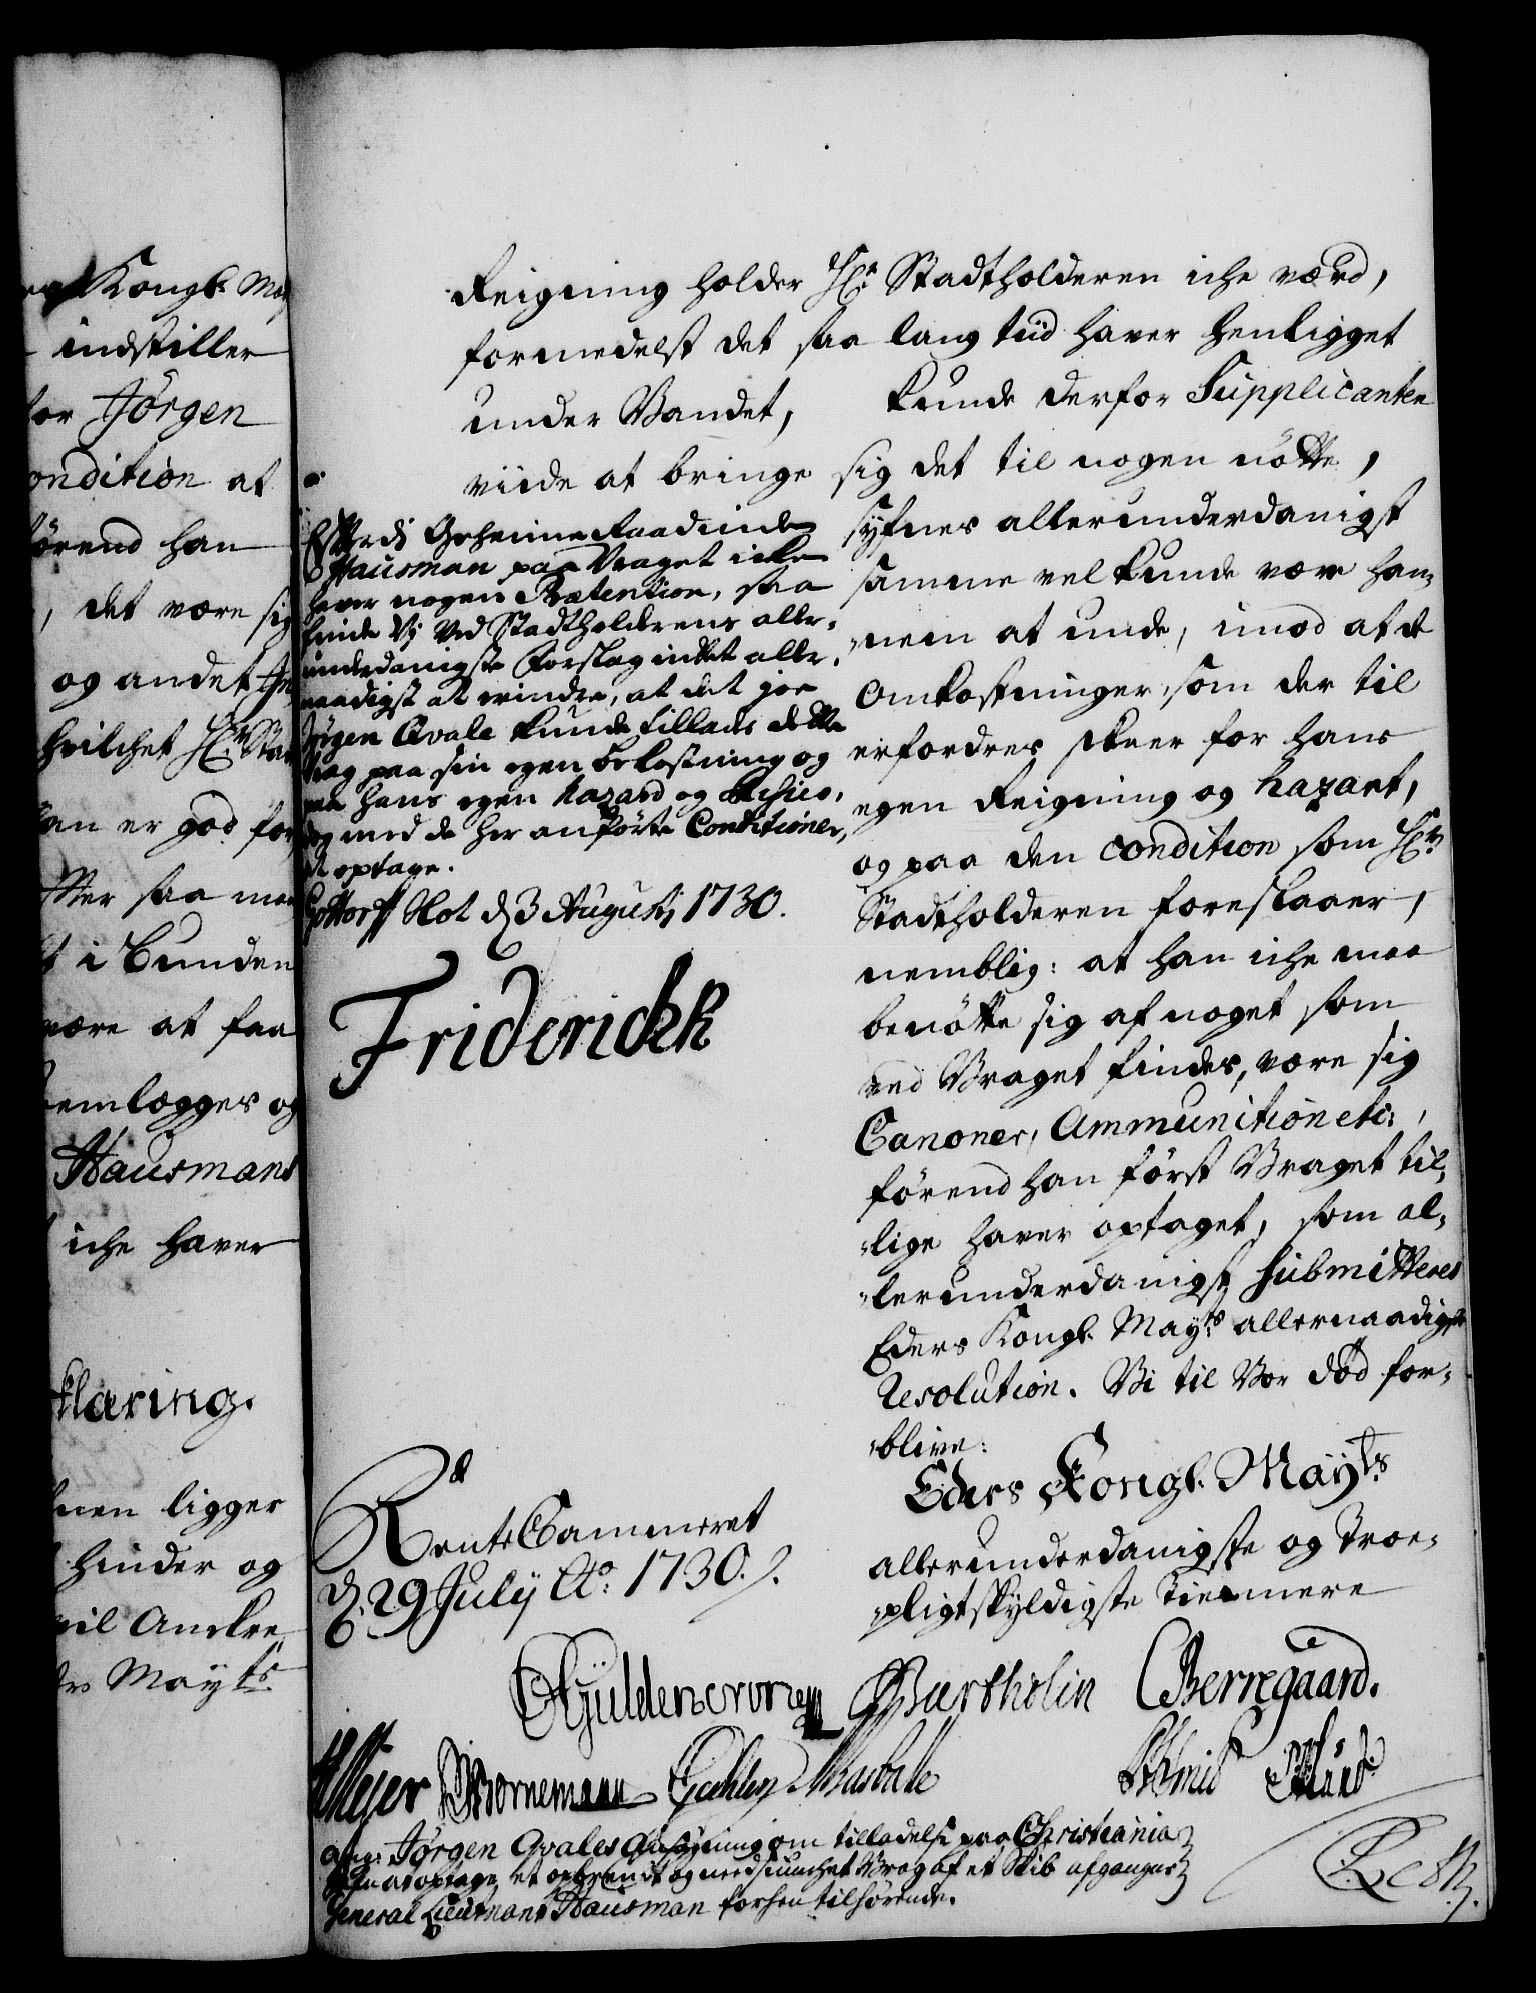 Kongl. May
indstiller
for Jörgen
ondition at
förend han
, det være sig
og andet
hvilchet Hr. Stat
an er god for
i Bunden
være at faa
emlegges og
Hausmans
iche haver
klæring.
nen ligger
hinder og
vil Anckre
May.ts
Reigning holder Hr. Stadtholderen iche værd,
formedelst det saa lang tiid haver henligget
under Vandet, kunde derfor Supplicanten
viide at bringe sig det til nogen nötte,
syfnes allerunderdanigst
samme vel kunde være han-
nem at unde, imod at de
Omkostninger, som der til
erfordres skeer for hans
egen Reigning og hazart,
og paa den condition som Hr.
Stadtholderen foreslaaer,
nemblig: at han iche maa
benötte sig af noget som
ved Vraget findes, være sig
Canoner, Ammunition etc:,
förend han först Vraget til-
lige haver optaget, som al-
lerunderdanigst submitteres
Eders Kongl. May.ts allernaadigste
Resolution. Vi til Vor död for-
blive:
Eders Kongl. May.ts
allerunderdanigste og Troe-
pligtskyldigste Tienere
Efterdj Geheime Raadinde
Hausman paa Vraget icke
haver nogen Prætention, saa
finde Vj Ved Stadtholderens aller-
underdanigste Forslag intet aller-
naadigst at erindre, at det jo
Jörgen Qvale kunde tillades dette
Vrag paa sin egen bekostning og
paa hans egen hazard og Risico,
og med de her anförte Conditioner,
at optage.
Gottorff Slot d. 3 Augustj 1730.
Friderich R
Rente Cammeret
d. 29 July Ao. 1730.
Gyldencrone Bartholin Berregaard.
Meyer Bornemann
ang: Jörgen Qvales Ansögning om tilladelse paa Christiania
at optage et opbrendt og nedsunchet Vrag af et Skib afgangne
General Lieutnant Hausman forhen tilhörende.